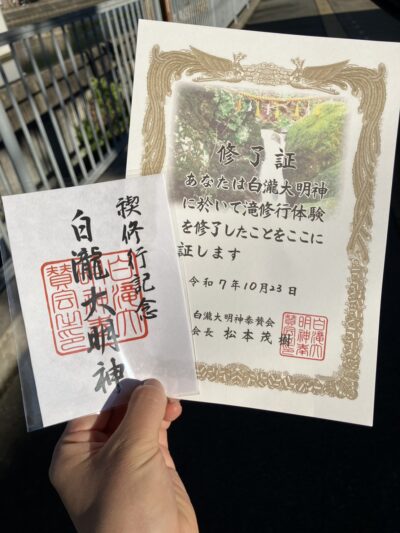 禊修行記念
白瀧大明神
白滝大
明神奉
賛会印
修了証
あなたは白瀧大明神
に於いて滝修行体験
を修了したことをここに
証します
令和7年10月23日
白瀧大明神奉賛会
会長 松本茂樹
白滝大
明神奉
賛会印